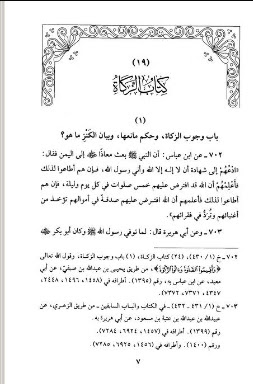 (١٩)
كتاب الزكاة
(١)
باب وجوب الزكاة، وحكم مانعها، وبيان الكنز ما هو؟
٧٠٢ ـ عن ابن عباس: أن النبي ﷺ بعث معاذًا ﷺ إلى اليمن فقال:
«ادعُهُمْ إلى شهادة أن لا إله إلا الله وأني رسول الله، فإن هم أطاعوا لذلك
فأعلمهُمْ أن الله قد افترض عليهم خمس صلوات في كل يوم وليلة، فإن هم
أطاعوا لذلك فأعلمهم أن الله افترض عليهم صدقة في أموالهم تؤخذ من
أغنيائهم وتُرَدُّ في فقرائهم».
٧٠٣ ـ وعن أبي هريرة قال: لما توفي رسول الله ﷺ وكان أبو بكر
٧٠٢ ـ خ (١/ ٤٣٠)، (٢٤) كتاب الزكاة، (١) باب وجوب الزكاة، وقول الله تعالى
﴿وَأَقِيمُوا الصَّلَاةَ وَآتُوا الزَّكَاةَ﴾، من طريق يحيى بن عبدالله بن صيفي، عن أبي
معبد، عن ابن عباس به، رقم (١٣٩٥). أطرافه في (١٤٥٨، ١٤٩٦، ٢٤٤٨،
٤٣٤٧، ٧٣٧١، ٧٣٧٢).
٧٠٣ ـ خ (١/ ٤٣١ ـ ٤٣٢)، في الكتاب والباب السابقين ـ من طريق الزهري، عن
عبيدالله بن عبدالله بن عتبة بن مسعود، عن أبي هريرة به
رقم (١٣٩٩). أطرافه في (١٤٥٧، ٦٩٢٤، ٧٢٨٤).
ورقم (١٤٠٠)، وأطرافه في (١٤٥٦، ٦٩٢٥، ٧٢٨٥).
٧